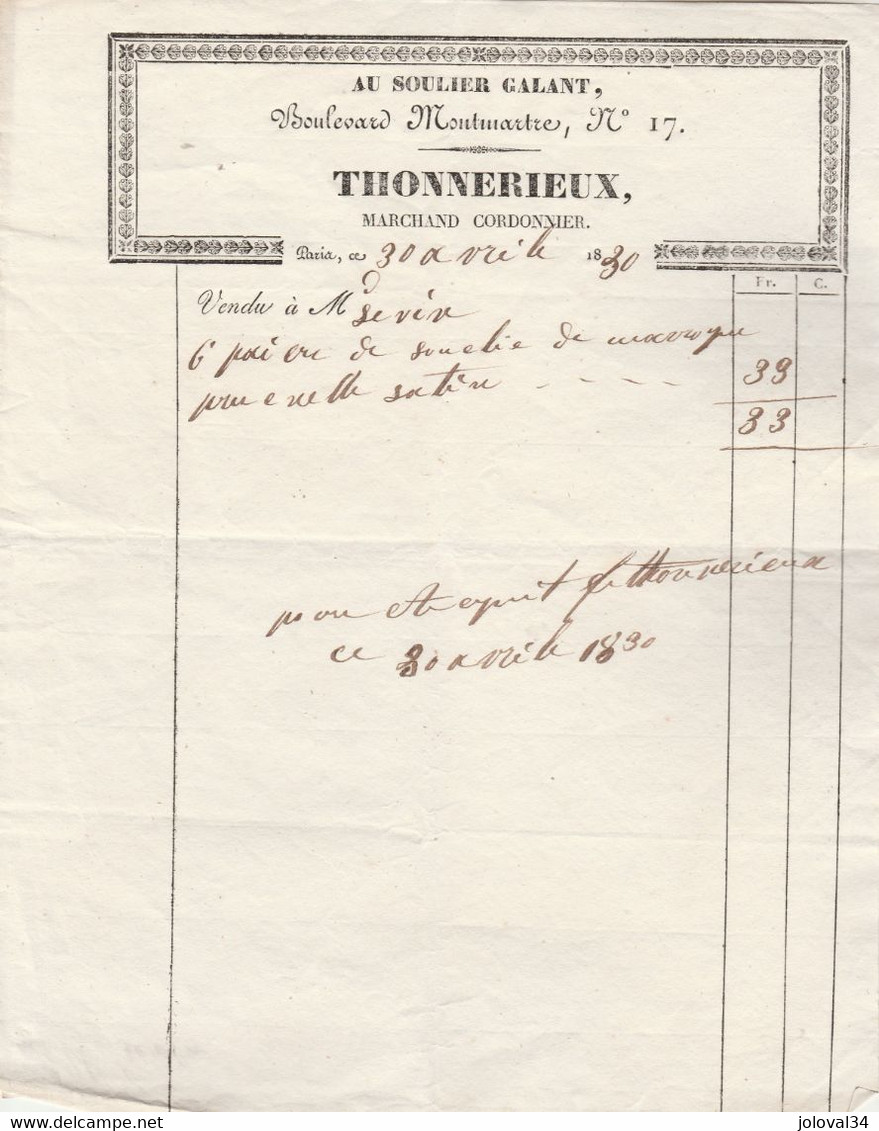 AU SOULIER GALANT,
Boulevard Montmartre, N° 17.
THONNERIEUX,
MARCHAND CORDONNIER.
Paris, ce 30 avrile 1830
Fr. C.
Vendu à M
6 paire de soulie de maroque
prunelle satin - - - - 33
33
pour acquit Thonnerieux
ce 30 avrile 1830
delcampe.net
joloval34